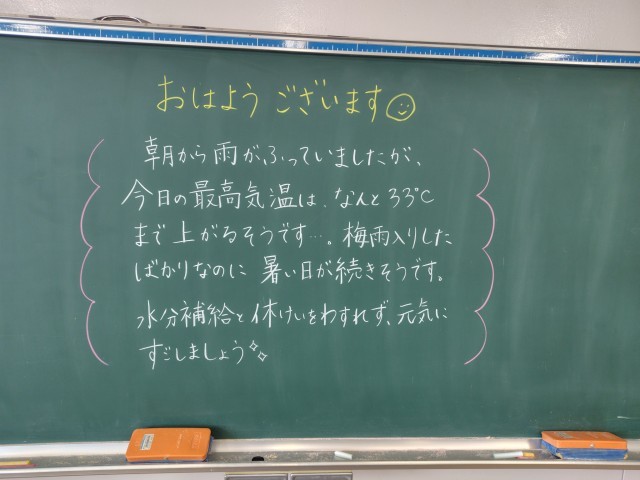 おはようございます
朝から雨がふっていましたが、
今日の最高気温は、なんと33℃
まで上がるそうです…。梅雨入りした
ばかりなのに暑い日が続きそうです。
水分補給と休けいをわすれず、元気に
すごしましょう